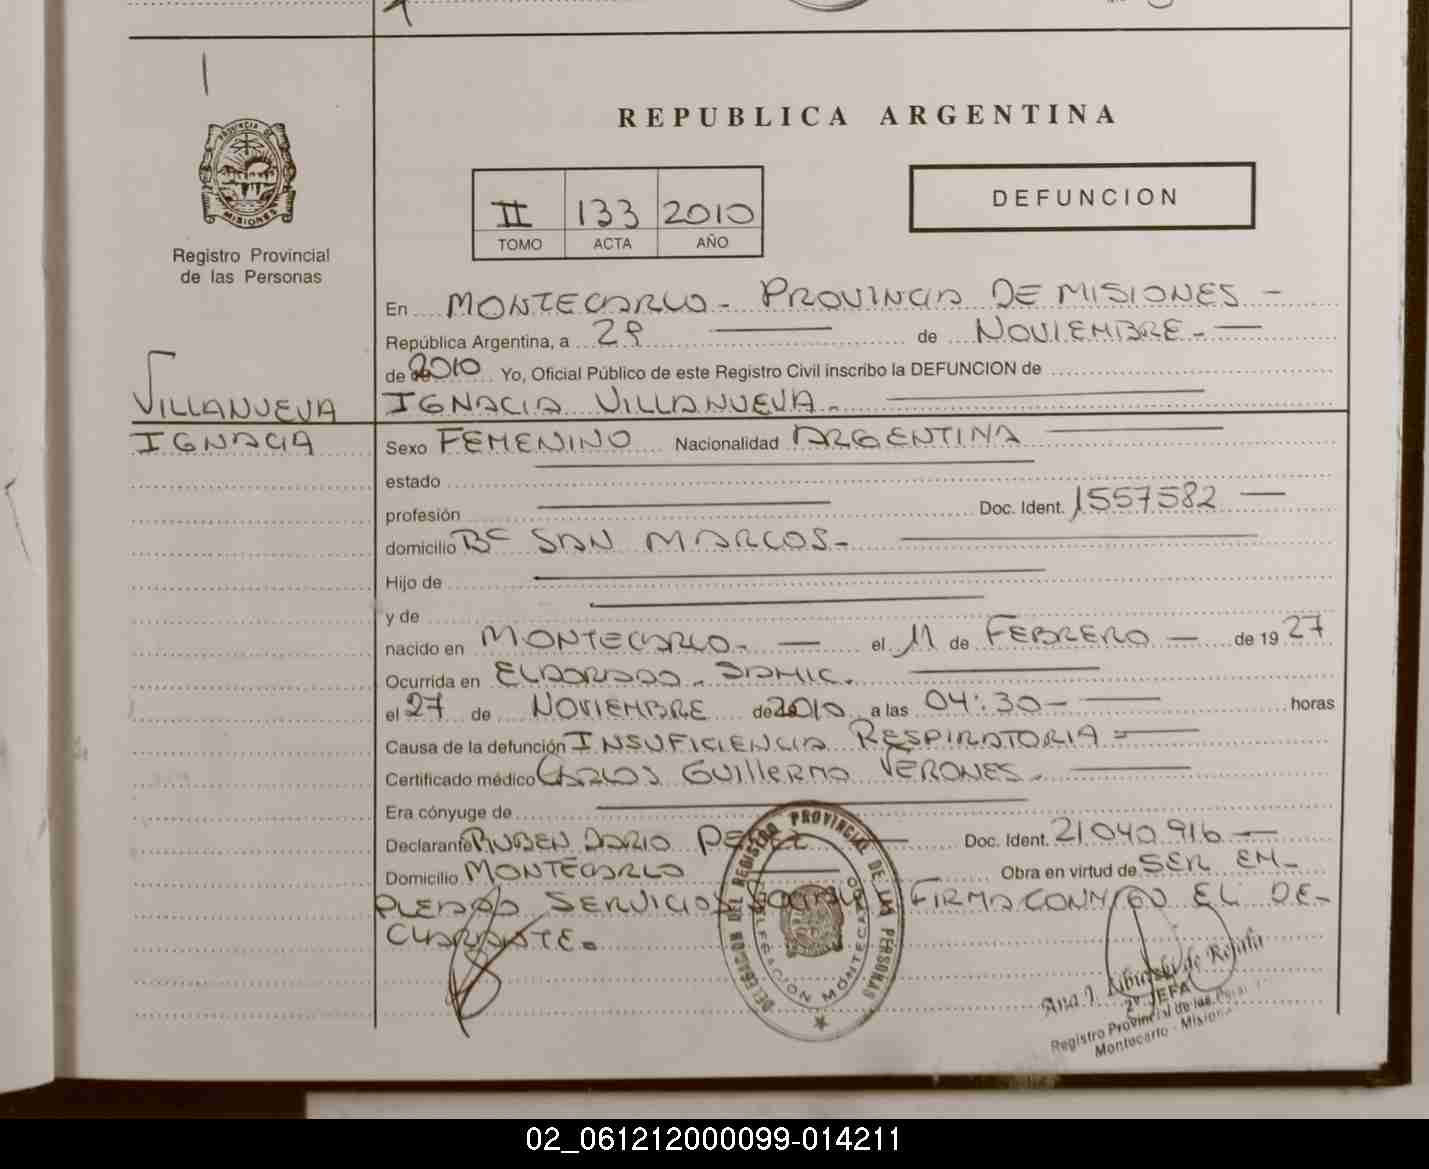 REPUBLICA ARGENTINA
PROVINCIA DE
MISIONES
Registro Provincial
de las Personas
II 133 2010
TOMO ACTA AÑO
DEFUNCION
En MONTECARLO - PROVINCIA DE MISIONES -
República Argentina, a 29 de NOVIEMBRE -
de 2010 Yo, Oficial Público de este Registro Civil inscribo la DEFUNCION de
VILLANUEVA
IGNACIA
IGNACIA VILLANUEVA -
Sexo FEMENINO Nacionalidad ARGENTINA
estado
profesión Doc. Ident. 1557582
domicilio Bº SAN MARCOS -
Hijo de
y de
nacido en MONTECARLO - el 11 de FEBRERO de 19 27
Ocurrida en ELDORADO - SAMIC.
el 27 de NOVIEMBRE de 2010 a las 04:30 - horas
Causa de la defunción INSUFICIENCIA RESPIRATORIA -
Certificado médico CARLOS GUILLERMO VERONES -
Era cónyuge de
Declarante RUBEN DARIO Doc. Ident. 21.040.916 -
Domicilio MONTECARLO Obra en virtud de SER EM-
PLEADO SERVICIOS SOCIALES FIRMA CONMIGO EL DE-
CLARANTE.
DELEGACION DEL REGISTRO PROVINCIAL DE LAS PERSONAS
DELEGACION MONTECARLO
Ana de
2º JEFA
Registro Provincial de las
Montecarlo - Misiones
02_061212000099-014211